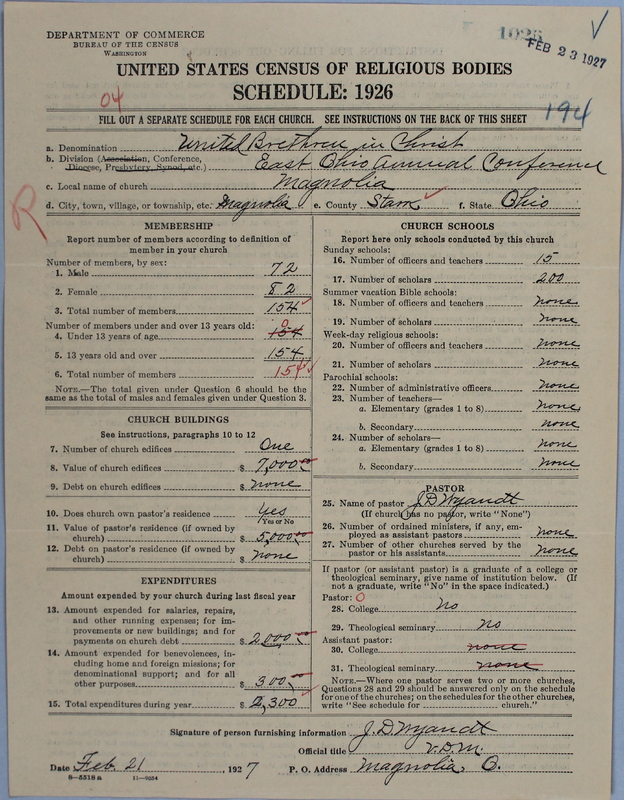 DEPARTMENT OF COMMERCE
BUREAU OF THE CENSUS
WASHINGTON
1926
FEB 23 1927
UNITED STATES CENSUS OF RELIGIOUS BODIES
SCHEDULE: 1926
04
194
FILL OUT A SEPARATE SCHEDULE FOR EACH CHURCH. SEE INSTRUCTIONS ON THE BACK OF THIS SHEET
a. Denomination United Brethren in Christ
b. Division (Association, Conference, Diocese, Presbytery, Synod, etc.) East Ohio Annual Conference
c. Local name of church Magnolia
d. City, town, village, or township, etc. Magnolia e. County Stark f. State Ohio
R
MEMBERSHIP
Report number of members according to definition of
member in your church
Number of members, by sex:
1. Male 72
2. Female 82
3. Total number of members 154
Number of members under and over 13 years old:
4. Under 13 years of age 154 0
5. 13 years old and over 154
6. Total number of members 154
NOTE.—The total given under Question 6 should be
same as the total of males and females given under Question 3.
CHURCH BUILDINGS
See instructions, paragraphs 10 to 12
7. Number of church edifices One
8. Value of church edifices $ 7,000.00
9. Debt on church edifices $ none
10. Does church own pastor's residence? Yes
Yes or No
11. Value of pastor's residence (if owned by
church) $ 5,000.00
12. Debt on pastor's residence (if owned by
church) $ none
EXPENDITURES
Amount expended by your church during last fiscal year
13. Amount expended for salaries, repairs,
and other running expenses; for im-
provements or new buildings; and for
payments on church debt $ 2,000.00
14. Amount expended for benevolences, in-
cluding home and foreign missions; for
denominational support; and for all
other purposes $ 300.00
15. Total expenditures during year $ 2,300
CHURCH SCHOOLS
Report here only schools conducted by this church
Sunday schools:
16. Number of officers and teachers 15
17. Number of scholars 200
Summer vacation Bible schools:
18. Number of officers and teachers none
19. Number of scholars none
Week-day religious schools:
20. Number of officers and teachers none
21. Number of scholars none
Parochial schools:
22. Number of administrative officers none
23. Number of teachers—
a. Elementary (grades 1 to 8) none
b. Secondary none
24. Number of scholars—
a. Elementary (grades 1 to 8) none
b. Secondary none
PASTOR
25. Name of pastor J.D. Wyandt
(If church has no pastor, write "None")
26. Number of ordained ministers, if any, em-
ployed as assistant pastors none
27. Number of other churches served by the
pastor or his assistants none
If pastor (or assistant pastor) is a graduate of a college or
theological seminary, give name of institution below. (If
not a graduate, write "No" in the space indicated.)
Pastor: O
28. College No
29. Theological seminary No
Assistant pastor:
30. College none
31. Theological seminary none
NOTE.—Where one pastor serves two or more churches,
Questions 28 and 29 should be answered only on the schedule
for one of the churches; on the schedules for the other churches,
write "See schedule for church."
Signature of person furnishing information J.D. Wyandt
Official title V.D.M.
Date Feb. 21, 1927 P. O. Address Magnolia, O.
8—5518 a 11—9054